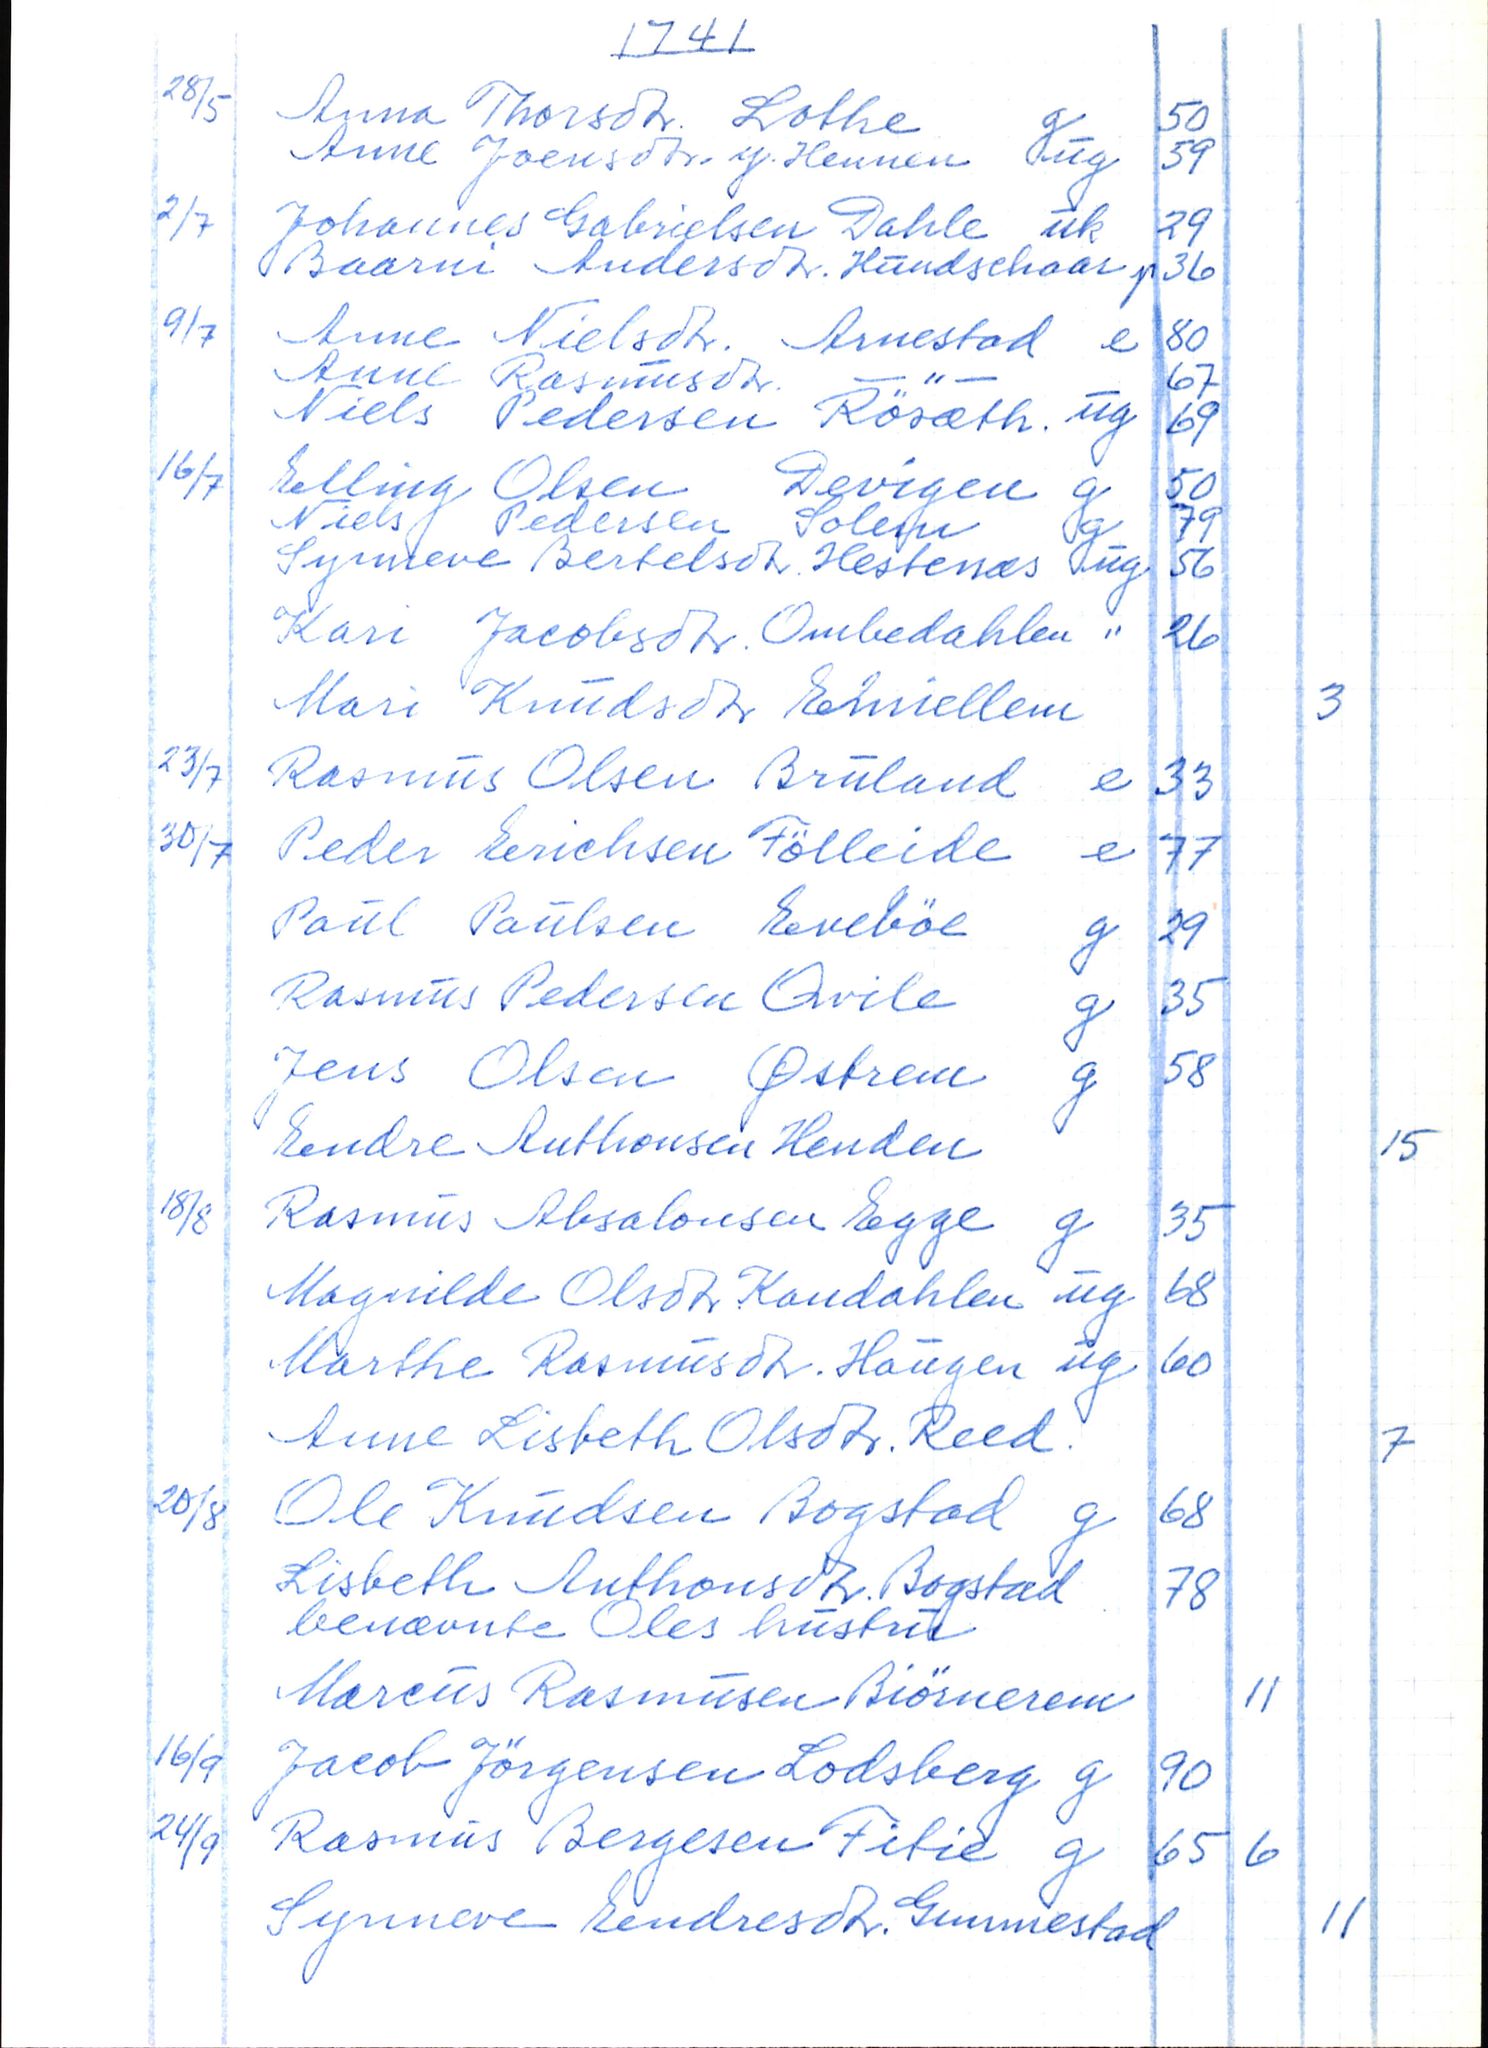 1741
28/5 Anna Thorsdtr. Lothe g 50
Anne Joensdtr. y. Hennen ug 59
2/7 Johannes Gabrielsen Dahle uk 29
Baarni Andersdtr. Hundschaar p 36
9/7 Anne Nielsdtr. Arnestad e 80
Anne Rasmusdtr. — " — 67
Niels Pedersen Rösæth. ug 69
16/7 Elling Olsen Devigen g 50
Niels Pedersen Solem g 79
Synneve Bertelsdtr. Hestenæs ug 56
Kari Jacobsdtr. Ombedahlen " 26
Mari Knudsdtr 3
23/7 Rasmus Olsen Bruland e 33
30/7 Peder Erichsen Fölleide e 77
Paul Paulsen Eveböe g 29
Rasmus Pedersen Qvile g 35
Jens Olsen Østrem g 58
Endre Anthonsen Henden 15
18/8 Rasmus Absalonsen Egge g 35
Magnilde Olsdtr. Kandahlen ug 68
Marthe Rasmusdtr. Haugen ug 60
Anne Lisbeth Olsdtr. Reed. 7
20/8 Ole Knudsen Bogstad g 68
Lisbeth Anthonsdtr. Bogstad 78
benævnte Oles hustru
Marcus Rasmusen Biörnerem 11
16/9 Jacob Jörgensen Lodsberg g 90
24/9 Rasmus Bergesen Fitie g 65 6
Synneve Endresdtr. Gimmestad 11